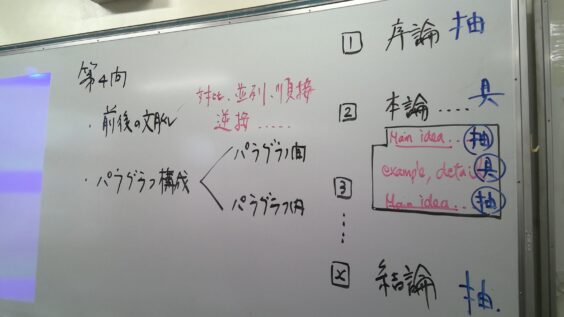 第4問
・前後の文脈
対比、並列、順接
逆接……
・パラグラフ構成
パラグラフ間
パラグラフ内
1 序論 抽
2 本論 ..... 具
Main idea.. 抽
example, detail 具
Main idea.. 抽
3
x 結論 抽.